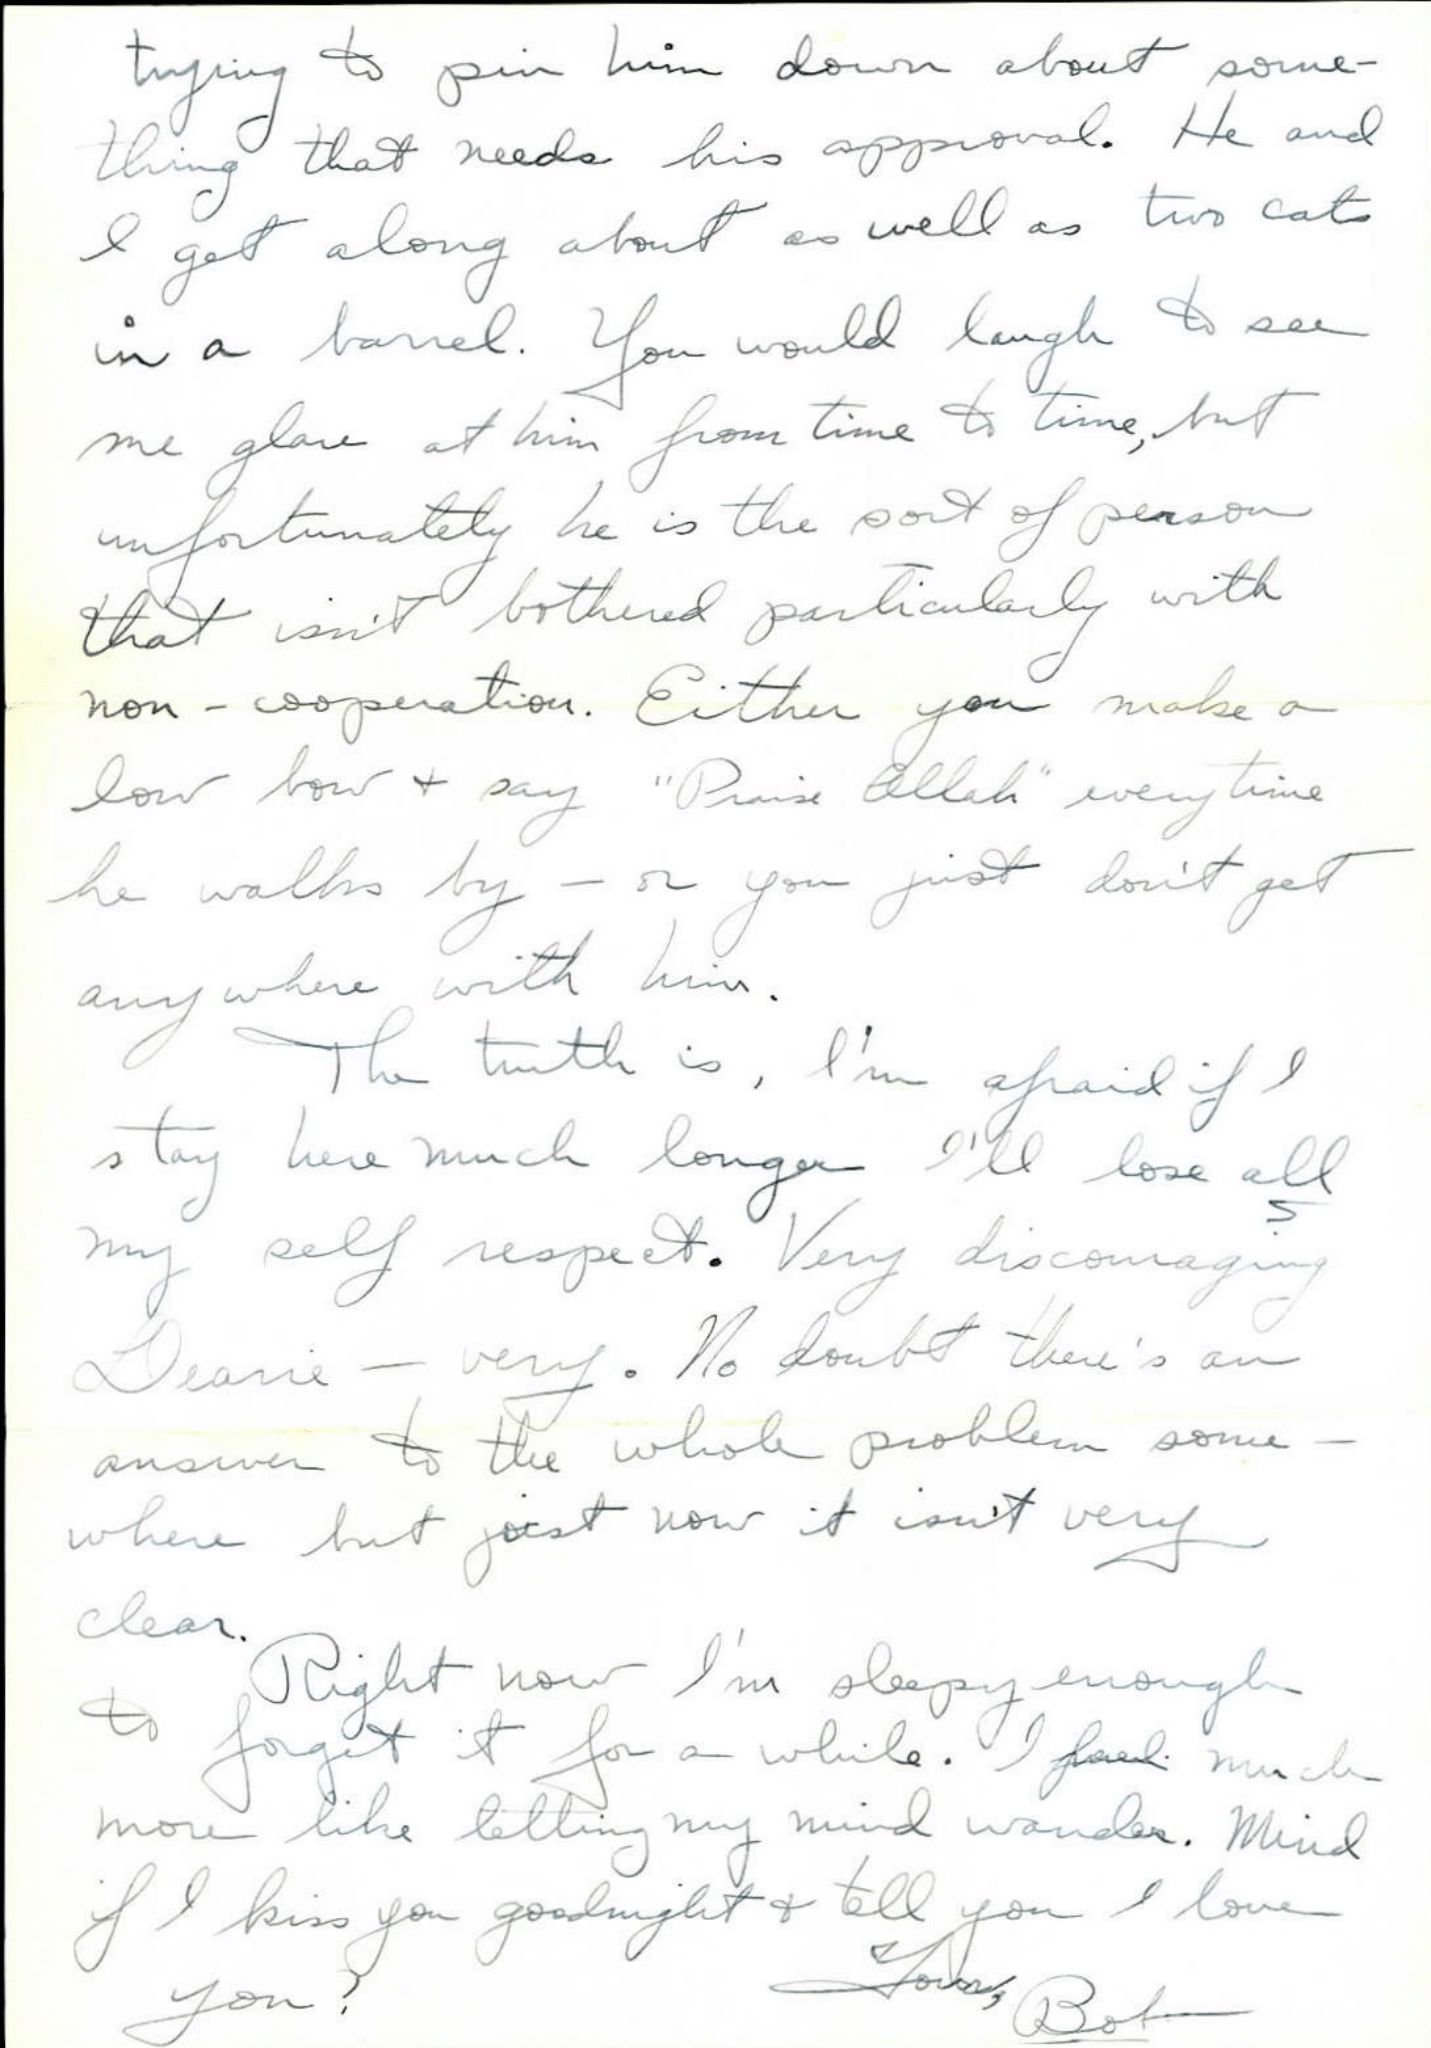 trying to pin him down about some-
thing that needs his approval. He and
I get along about as well as two cats
in a barrel. You would laugh to see
me glare at him from time to time, but
unfortunately he is the sort of person
that isn't bothered particularly with
non-cooperation. Either you make a
low bow + say "Praise Allah" everytime
he walks by — or you just don't get
anywhere with him.
The truth is, I'm afraid if I
stay here much longer I'll lose all
my self respect. Very discouraging
Dearie — very. No doubt there's an
answer to the whole problem some-
where but just now it isn't very
clear.
Right now I'm sleepy enough
to forget it for a while. I feel much
more like letting my mind wander. Mind
if I kiss you goodnight + tell you I love
you?
Yours,
Bob
5